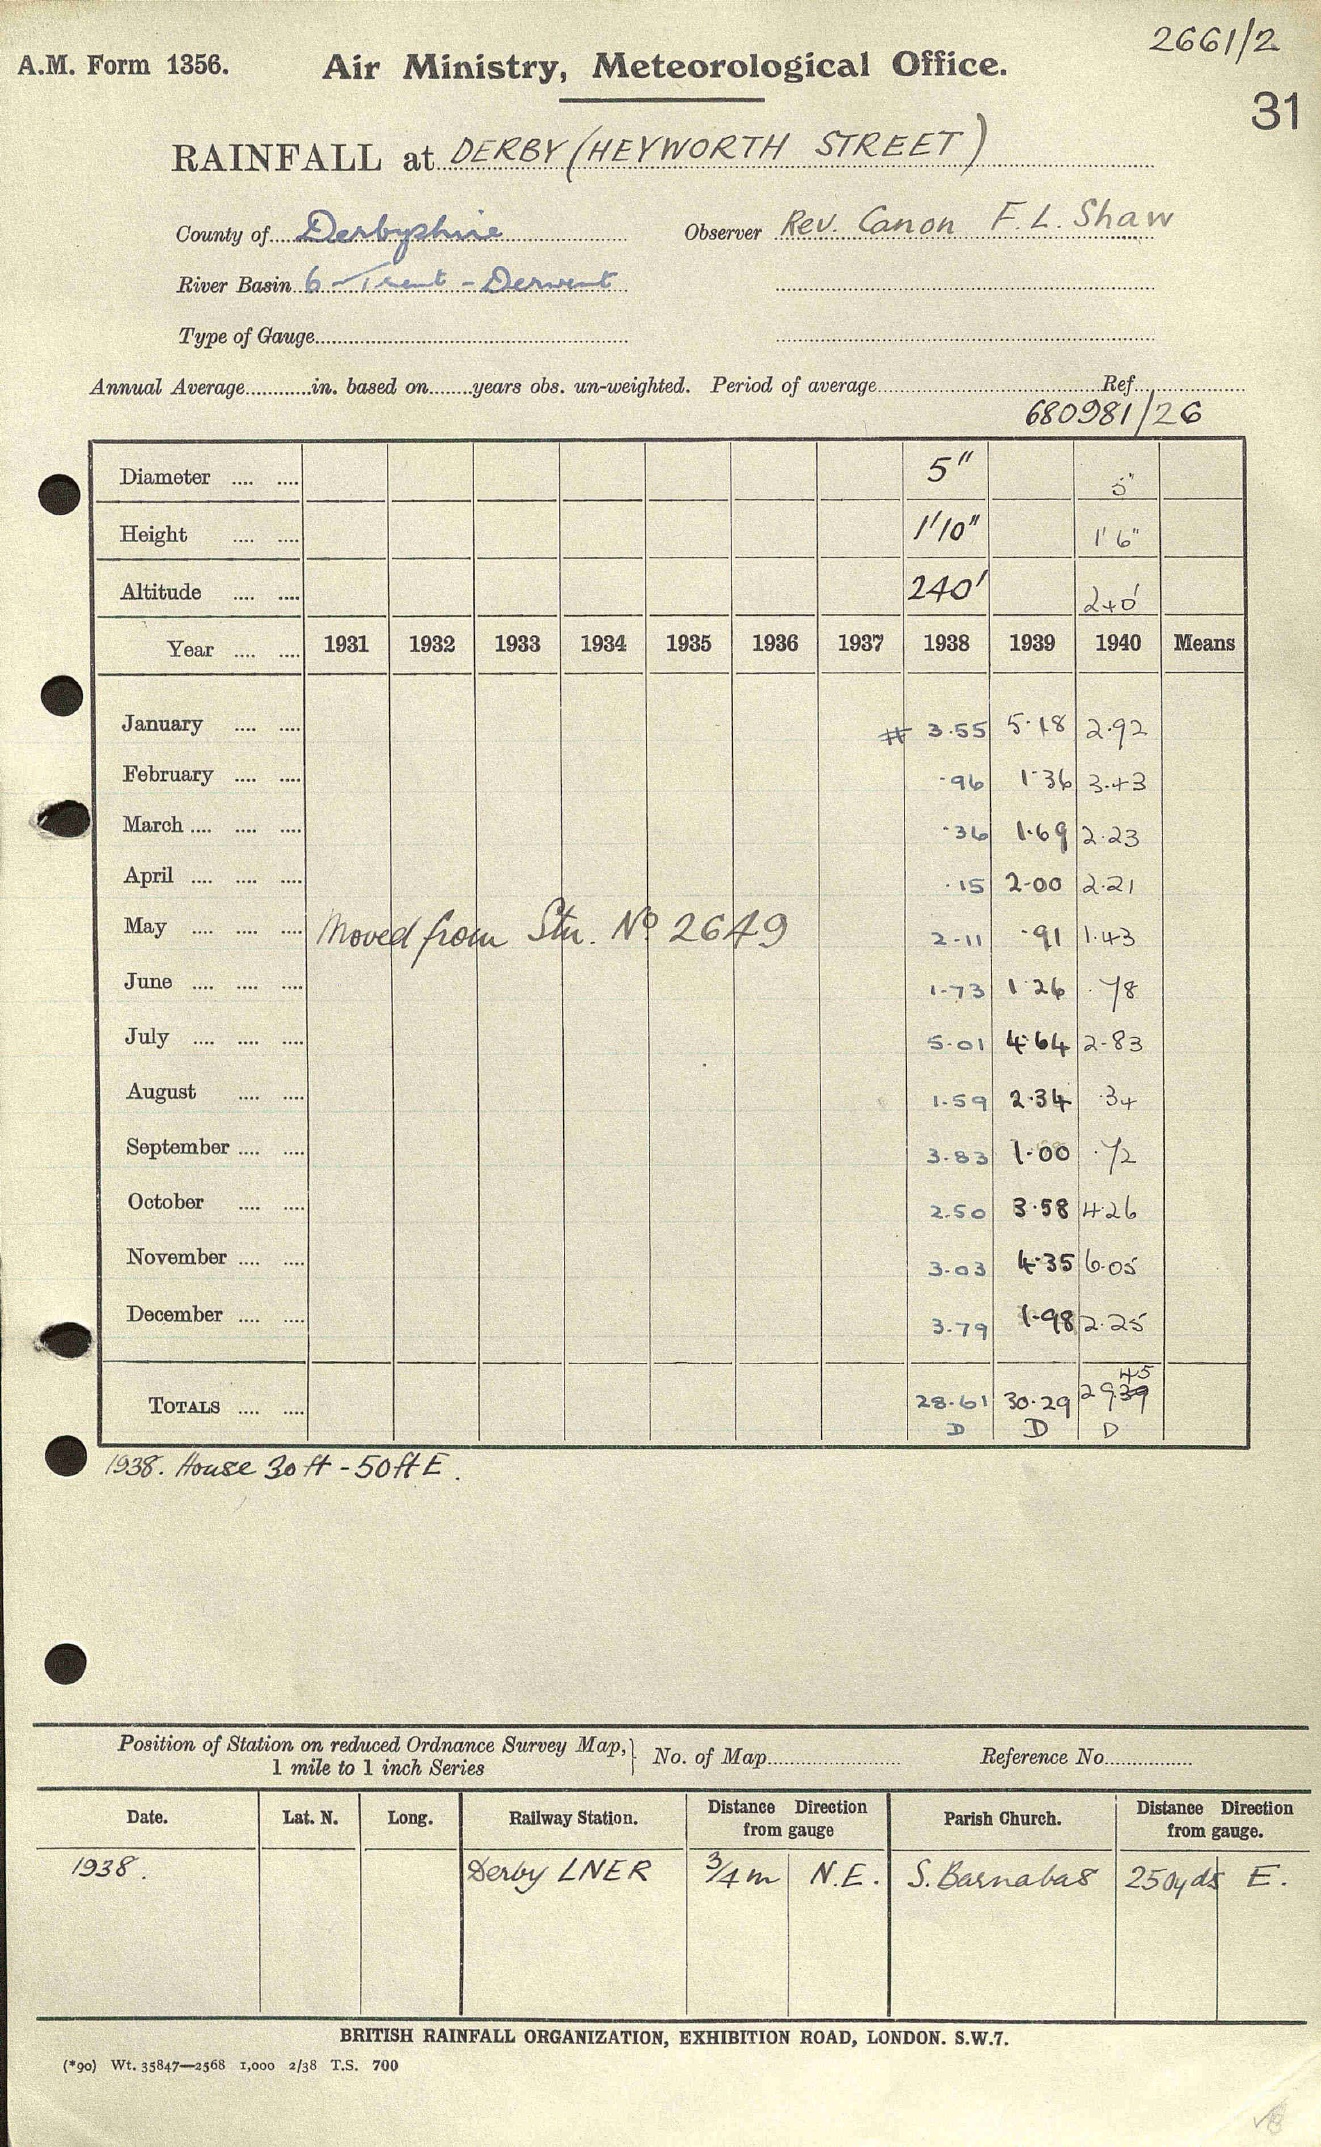 2661/2
A.M. Form 1356. Air Ministry, Meteorological Office.
31
RAINFALL at DERBY (HEYWORTH STREET)
County of Derbyshire Observer Rev. Canon F. L. Shaw
River Basin 6 - Trent - Derwent
Type of Gauge
Annual Average in. based on years obs. un-weighted. Period of average Ref.
680981/26
Diameter 5" 5"
Height 1'10" 1'6"
Altitude 240' 240'
Year 1931 1932 1933 1934 1935 1936 1937 1938 1939 1940 Means
January # 3.55 5.18 2.92
February .96 1.36 3.43
March .36 1.69 2.23
April .15 2.00 2.21
May Moved from Stn. No 2649 2.11 .91 1.43
June 1.73 1.26 .78
July 5.01 4.64 2.83
August 1.59 2.34 .34
September 3.83 1.00 .72
October 2.50 3.58 4.26
November 3.03 4.35 6.05
December 3.79 1.98 2.25
45
TOTALS 28.61 30.29 29.39
D D D
1938. House 30 ft - 50 ft E.
Position of Station on reduced Ordnance Survey Map, 1 mile to 1 inch Series } No. of Map Reference No.
Date. Lat. N. Long. Railway Station. Distance Direction from gauge Parish Church. Distance Direction from gauge.
1938. Derby LNER 3/4 m N.E. S. Barnabas 250 yds E.
BRITISH RAINFALL ORGANIZATION, EXHIBITION ROAD, LONDON. S.W.7.
(*90) Wt. 35847—2568 1,000 2/38 T.S. 700